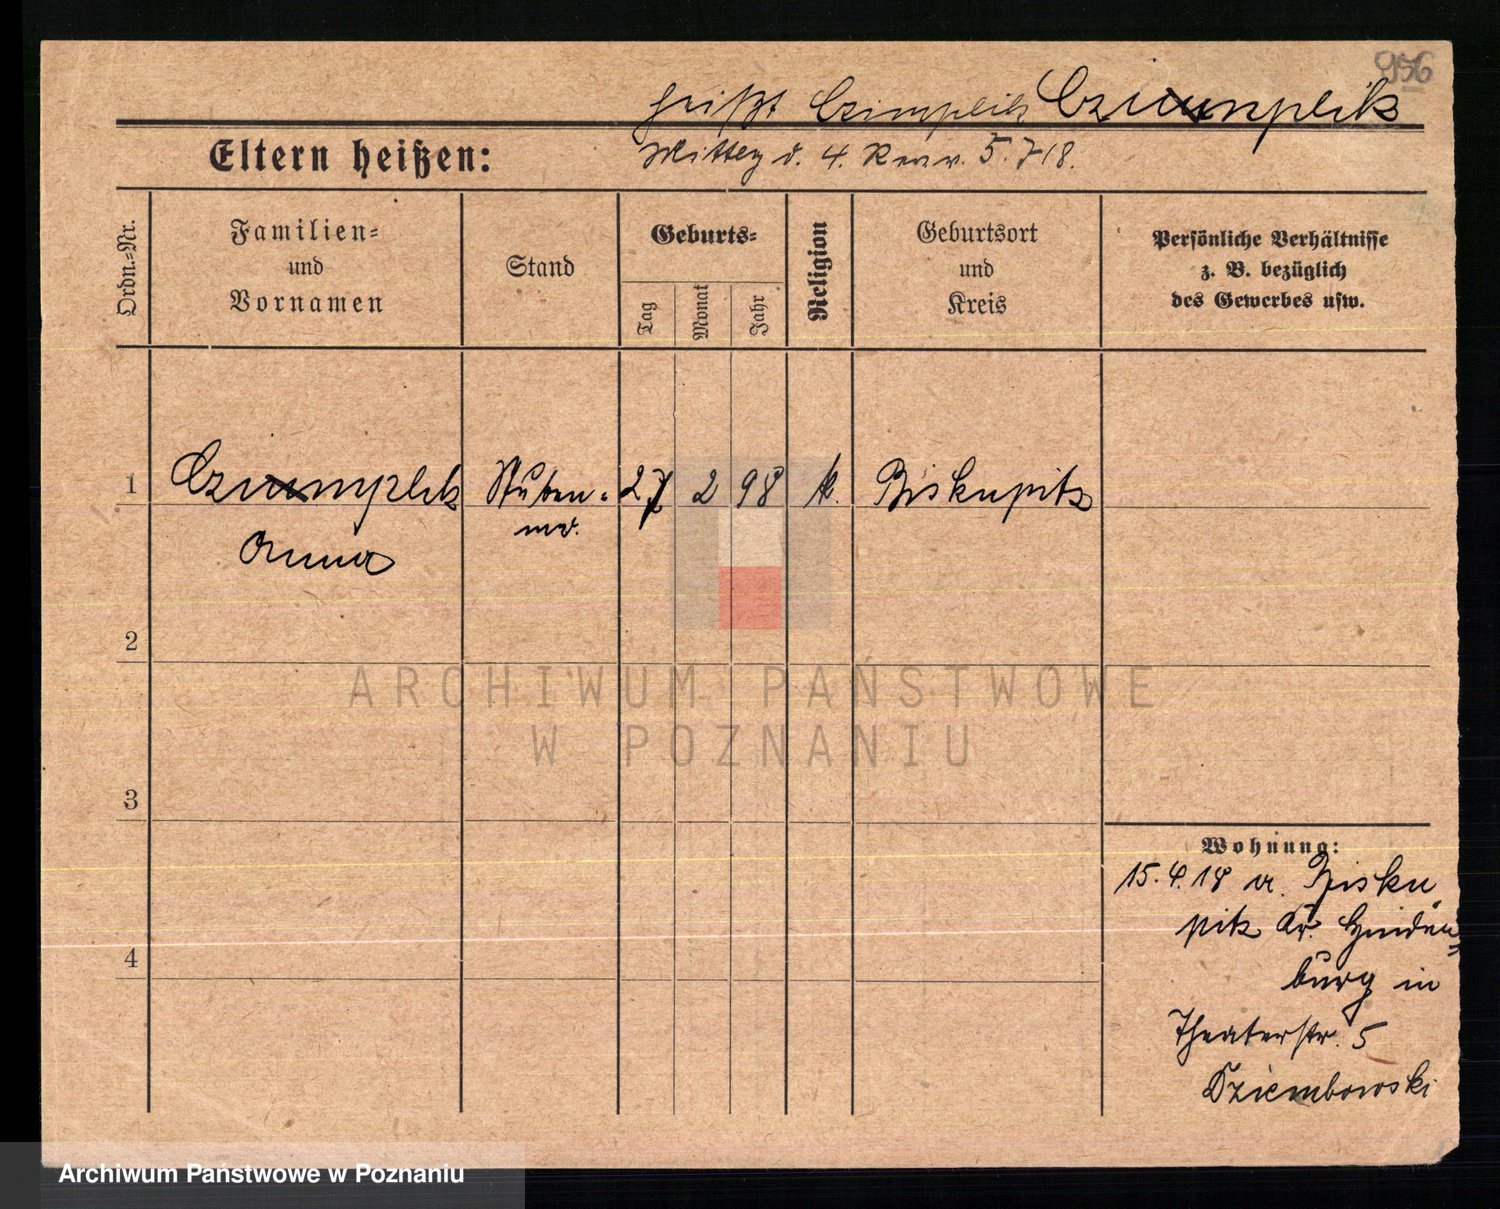 956
heißt Czimplik Cziumplik
Mitteg d. 4. Rev. v. 5.7.18.
Eltern heißen:
Ordn.-Nr.
Familien-
und
Vornamen
Stand
Geburts-
Tag
Monat
Jahr
Religion
Geburtsort
und
Kreis
Persönliche Verhältnisse
z. B. bezüglich
des Gewerbes usw.
1
Cziumplik
Stuben-
27
2
98
k.
Biskupitz
md.
Anna
2
ARCHIWUM PAŃSTWOWE
W POZNANIU
3
Wohnung:
15.4.18 v. Bisku
pitz Kr. Hinden=
4
burg in
Theaterstr. 5
Dziembowski
Archiwum Państwowe w Poznaniu